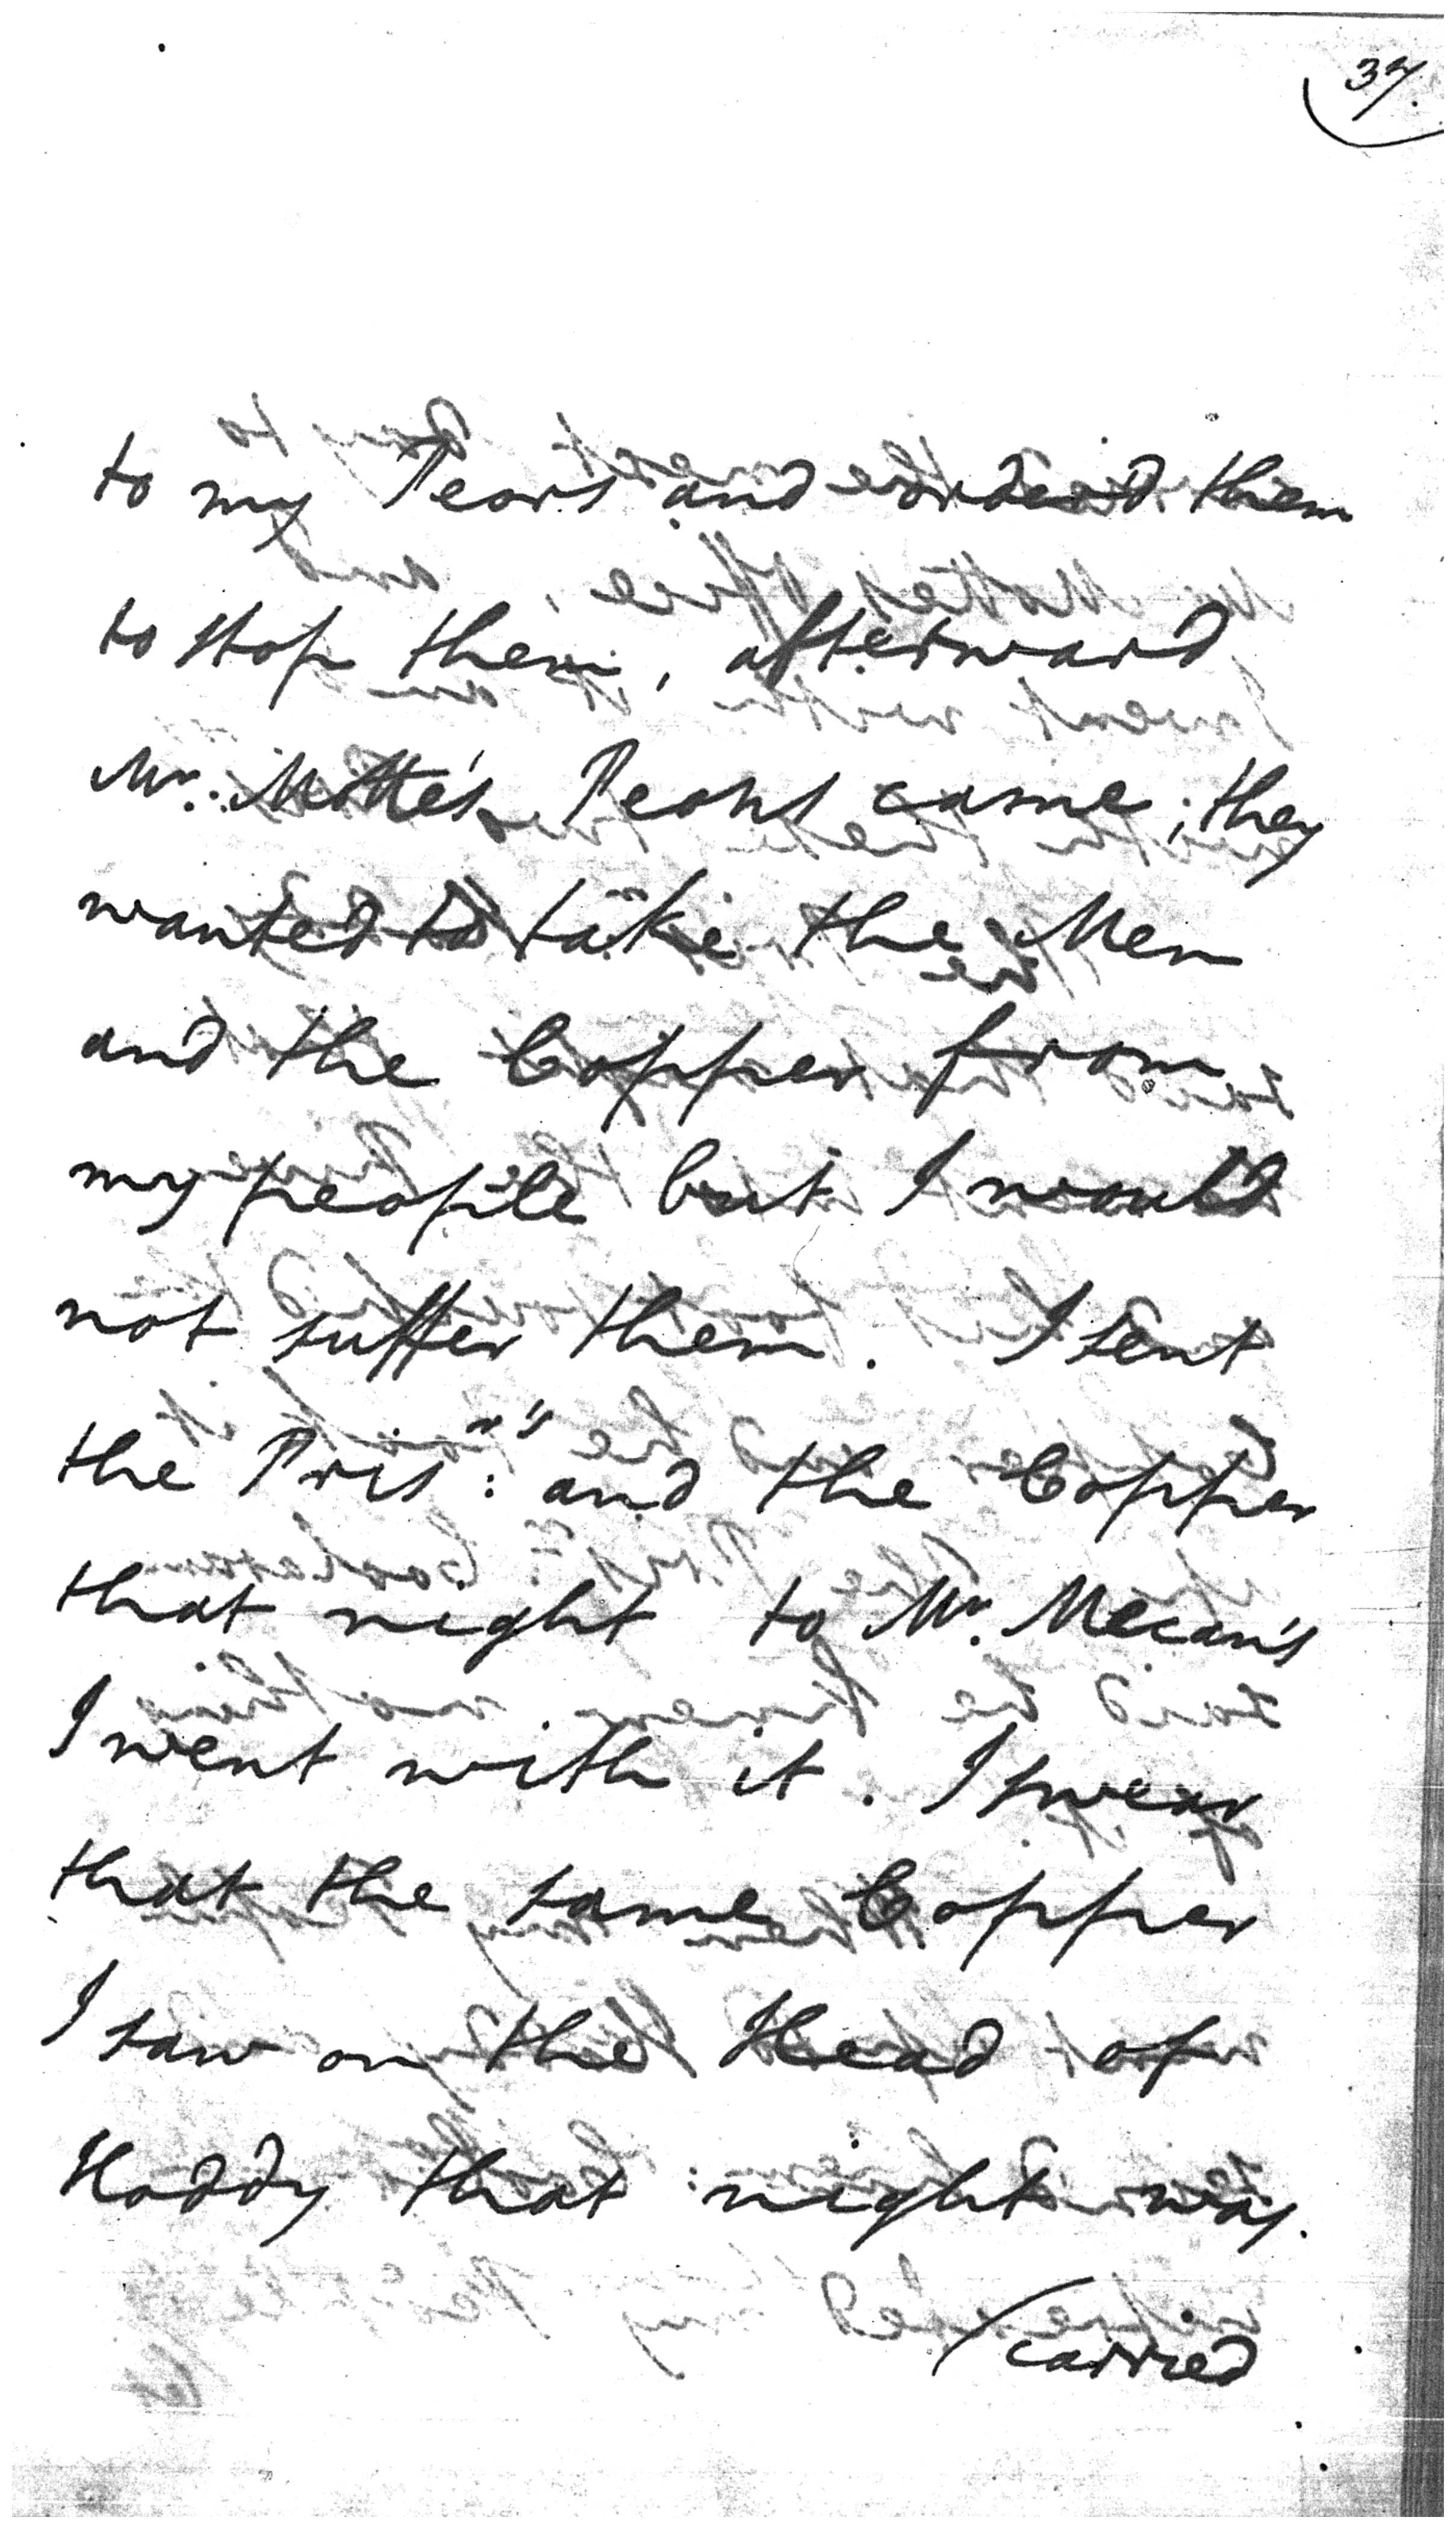 37.
to my Peons and orderd them
to stop them, afterward
Mr. Motte's Peons came; they
wanted to take the Men
and the Copper from
my people but I would
not suffer them. I sent
the Pris:n's and the Copper
that night to Mr. Mecan's
I went with it. I swear
that the same Copper
I saw on the Head of
Hoddy that night was
/carried